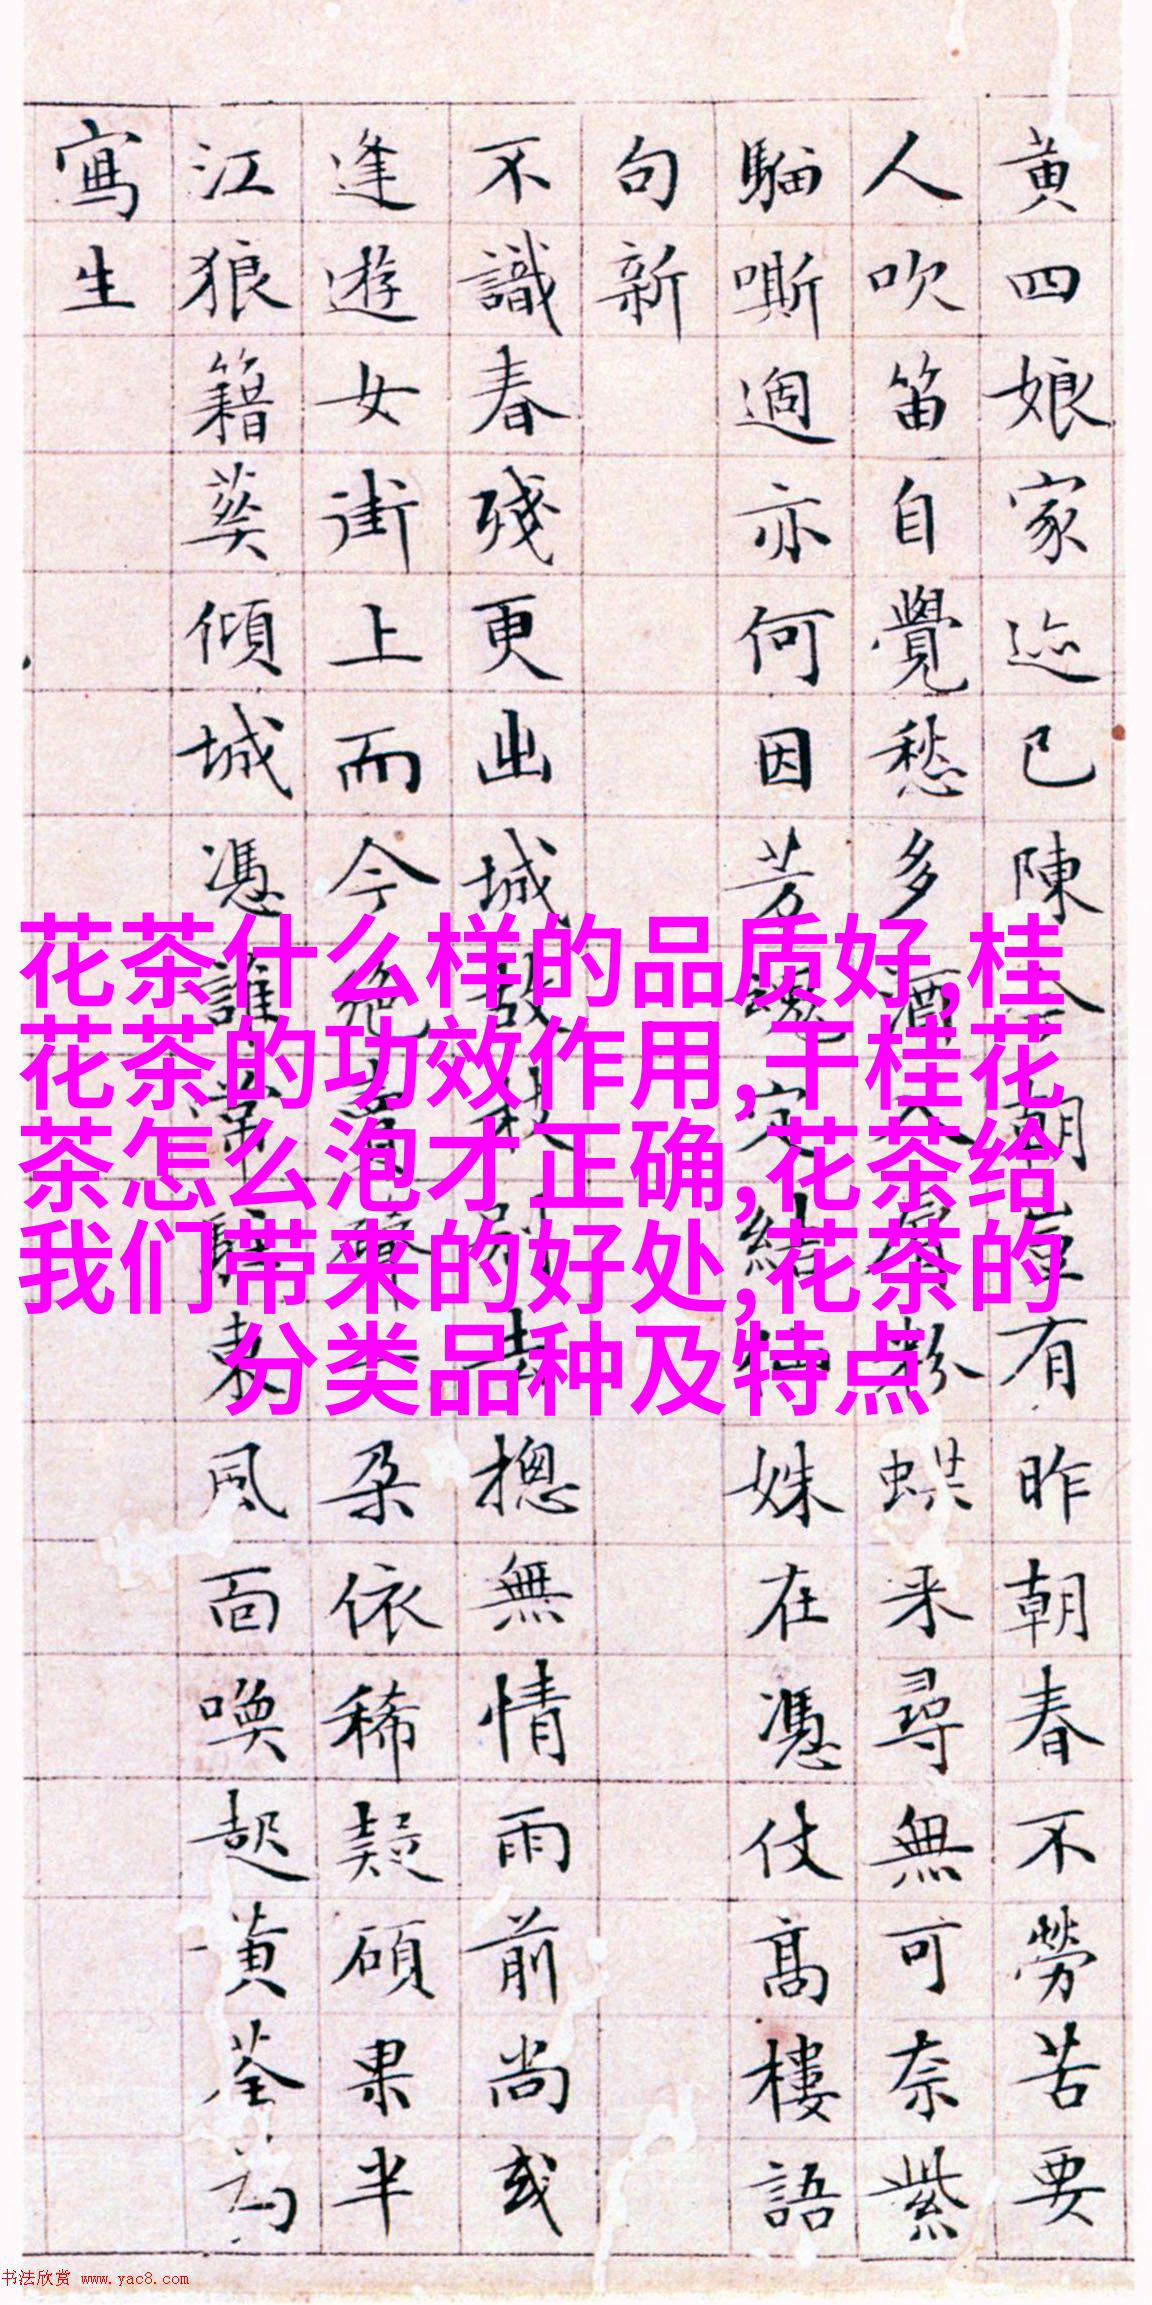 黄四娘家迹已陳朝有昨朝春不勞苦要
人吹笛自覺愁多酒粉蝶来尋無可奈紫
騮嘶過亦何因芳魂定結姝在憑仗高樓語
句新
不識春殘更出城故枝別摠無情雨前尚或
逢遊女街上而今絕朵依稀疑碩果半
江狼籍葵傾城憑誰常東風面喚起黄荃為
寫生
花茶什么样的品质好,桂
花茶的功效作用,干桂花
茶怎么泡才正确,花茶给
我们带来的好处,花茶的
分类品种及特点
书法欣赏 www.yac8.com